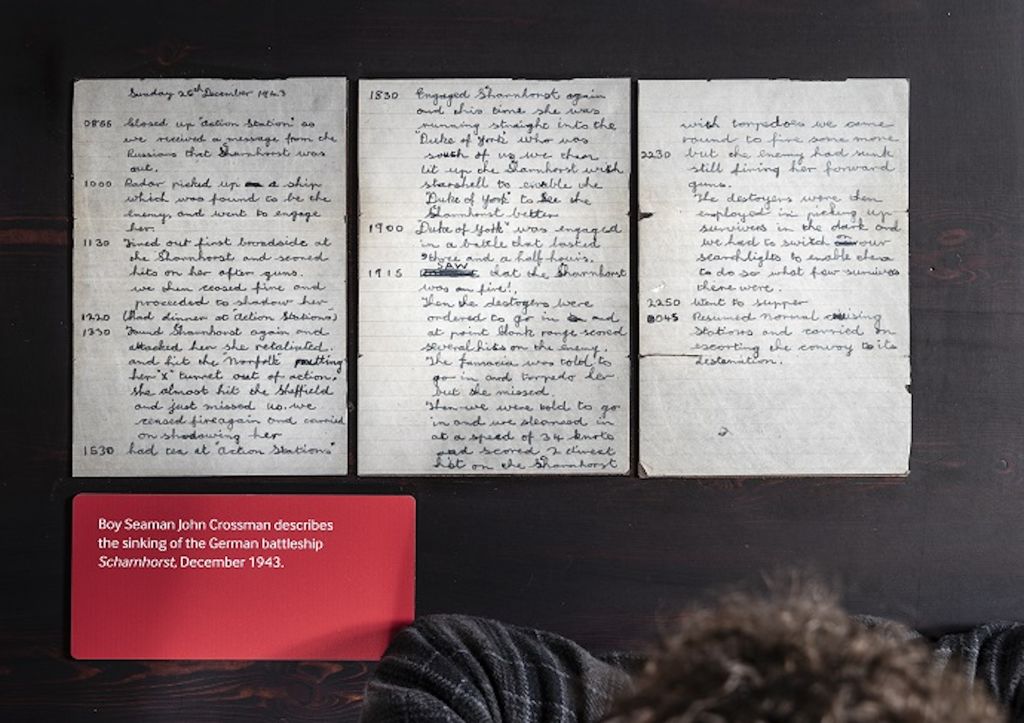 Sunday 26th December 1943
0855 Closed up "action Station" as
we received a message from the
Russians that Sharnhorst was
out.
1000 Radar picked up a ship
which was found to be the
enemy, and went to engage
her.
1130 Fired out first broadside at
the Sharnhorst and scored
hits on her after guns.
we then ceased fire and
proceeded to shadow her
1220 (Had dinner at Action Stations)
1330 Found Sharnhorst again and
attacked her she retaliated.
and hit the Norfolk putting
her "X" turret out of action.
she almost hit the Sheffield
and just missed us. we
ceased fire again and carried
on shadowing her
1530 had tea at "Action Stations"
1830 Engaged Sharnhorst again
and this time she was
running straight into the
"Duke of York" who was
south of us we then
lit up the Sharnhorst with
starshell to enable the
"Duke of York" to see the
Sharnhorst better
1900 "Duke of York" was engaged
in a battle that lasted
three and a half hours.
1915 SAW that the Sharnhorst
was on fire!,
Then the destogers were
ordered to go in and
at point blank range scored
several hits on the enemy.
The Jamacia was told to
go in and torpedo her
but she missed.
Then we were told to go
in and we steamed in
at a speed of 34 knots
and scored 2 direct
hit on the Sharnhorst
with torpedoes we came
round to fire some more
2230 but the enemy had sunk
still firing her forward
guns.
The destoyers were then
employed in picking up
survivers in the dark and
we had to switch on our
searchlights to enable them
to do so what few survivers
there were.
2250 Went to supper
0045 Resumed normal cruising
Stations and carried on
escorting the convoy to its
destination.
Boy Seaman John Crossman describes
the sinking of the German battleship
Scharnhorst, December 1943.